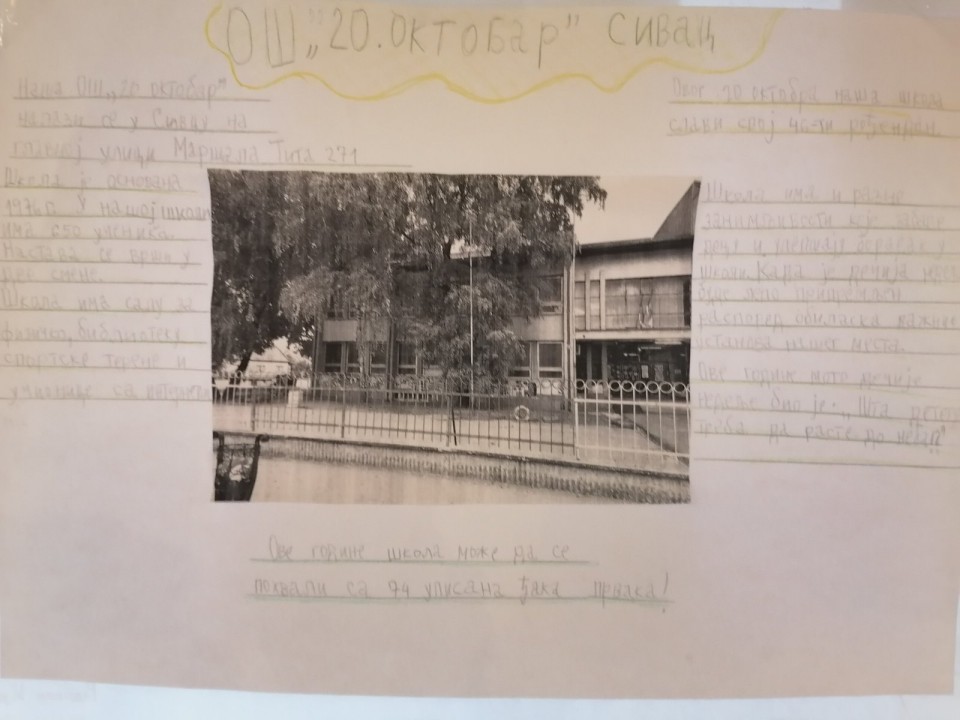 ОШ „20. октобар” Сивац
Наша ОШ „20 октобар”
налази се у Сивцу на
главној улици Маршала Тита 271
Школа је основана
1976 г. У нашој школи
има 650 ученика.
Настава се врши у
две смене.
Школа има салу за
физичко, библиотеку,
спортске терене и
учионице са
20 октобра наша школа
слави свој 45-ти рођендан.
Школа има и разне
занимљивости које
и улепшају боравак у
школи. Када је дечија недеља
распоред обиласка важних
установа нашег места.
Ове године мото дечије
недеље био је: „Шта детету
треба да расте до неба?”
Ове године школа може да се
похвали са 44 уписана ђака првака!